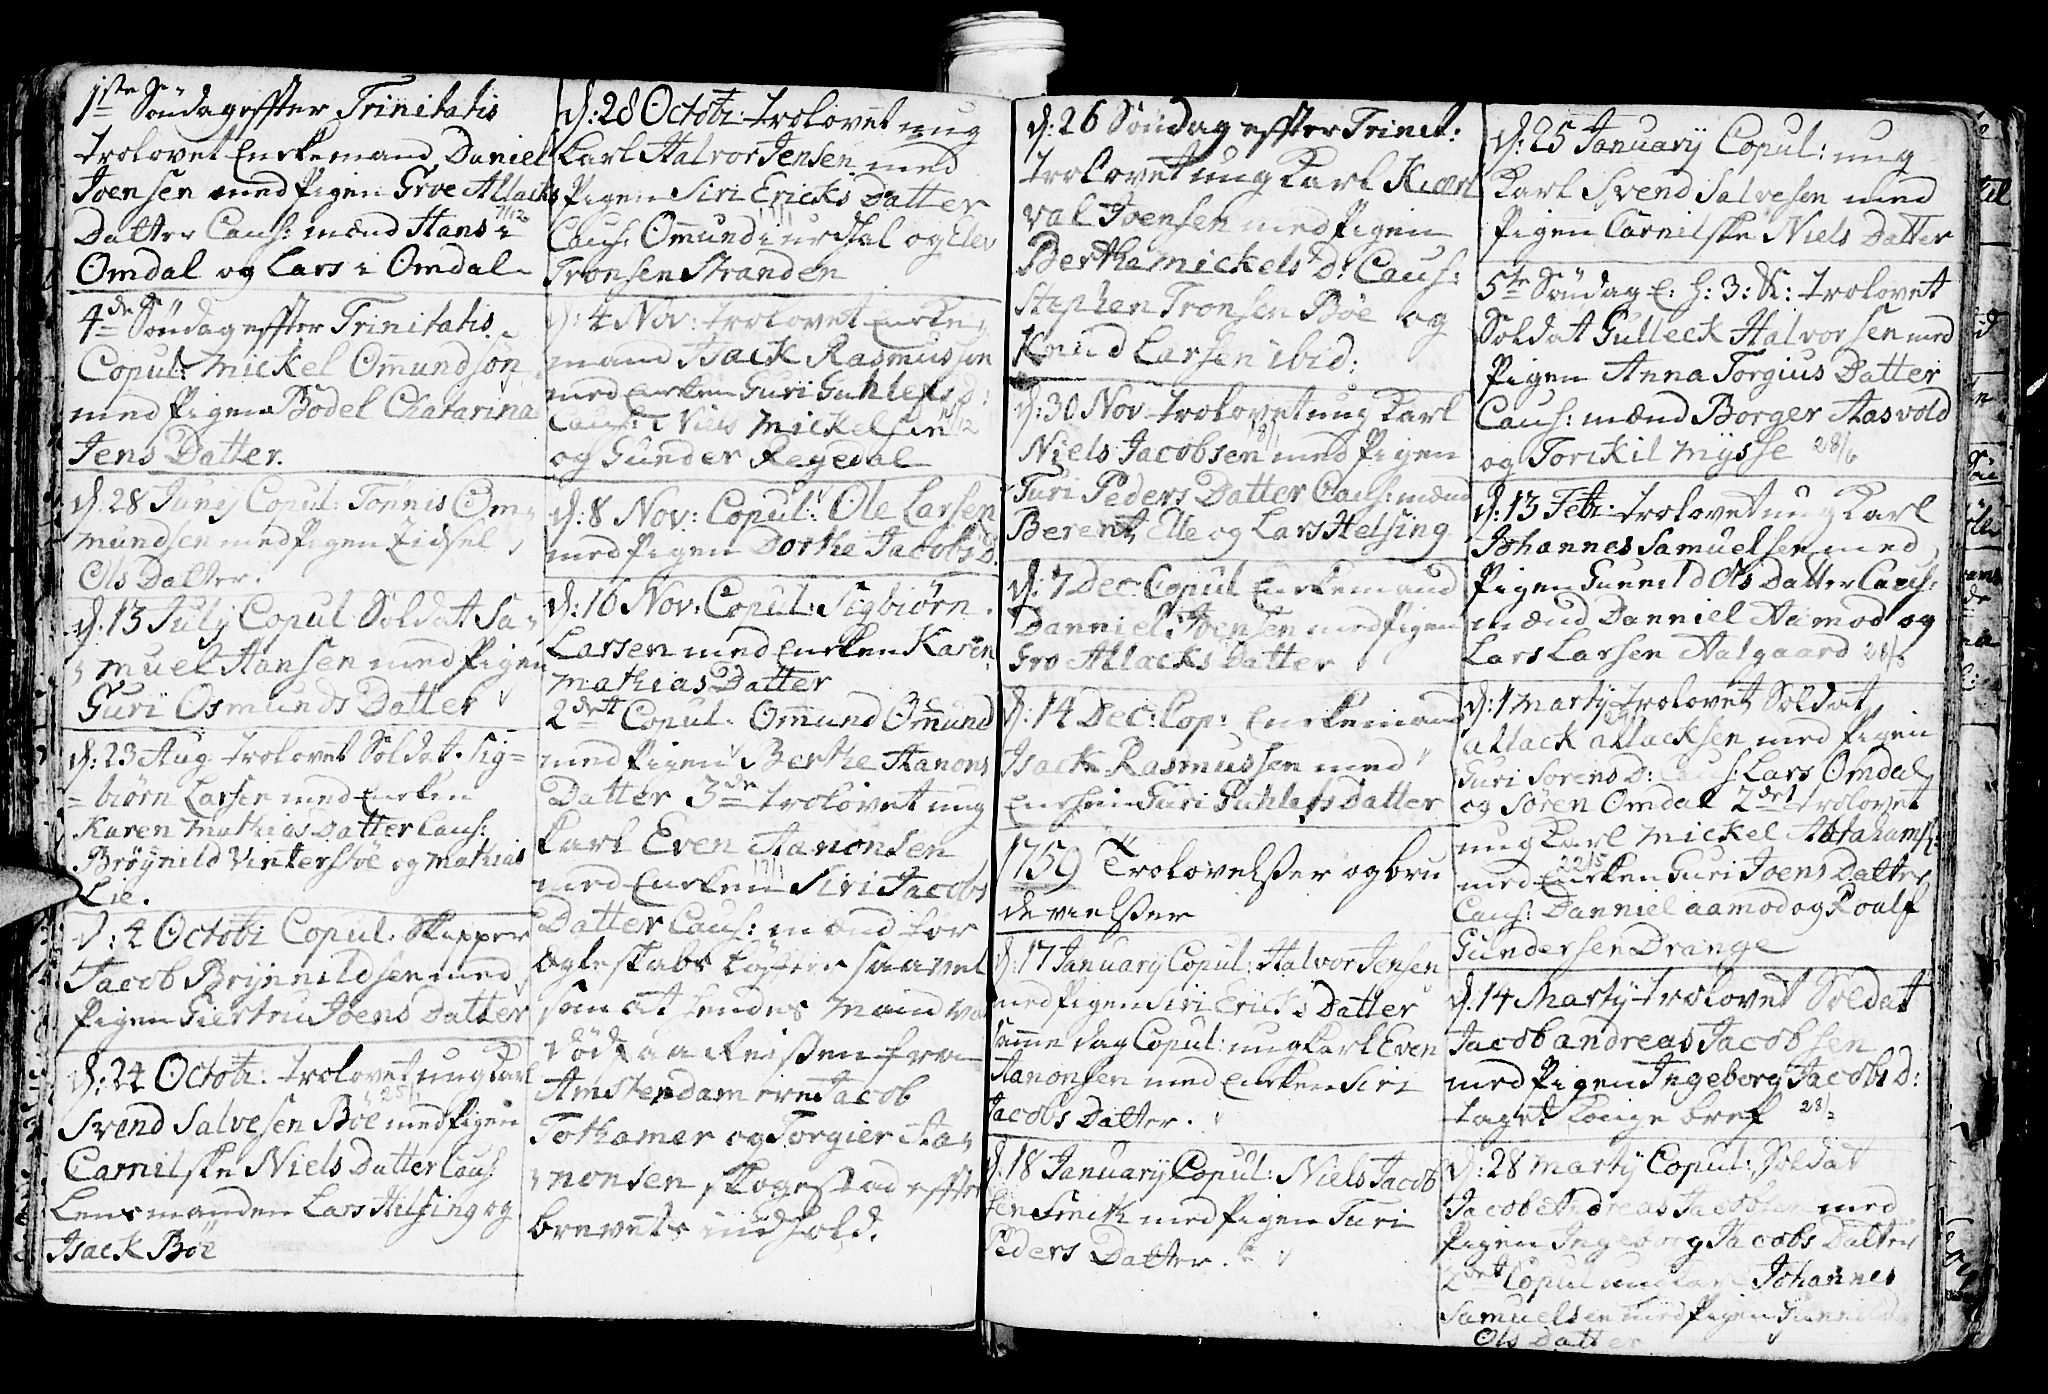 1ste Söndag effter Trinitatis
trolovet Enckemand Daniel
Joensen med Pigen Groe Atlacks
Datter Caus: mænd Hans i 7/12
Omdal og Lars i Omdal
4de Söndag effter Trinitatis
Copul: Mickel Omundsøn
med Pigen Bodel Chatarina
Jens Datter.
d. 28 Junij Copul: Tønnis Om-
mundsen med Pigen Zidsel
Ols Datter.
d. 13 July Copul Soldat Sa-
muel Hansen med Pigen
Guri Osmunds Datter
d: 23 Aug trolovet Soldat Sig=
=biörn Larsen med Encken
Karen Mathias Datter Caus:
Bröynild Vinterstöe og Mathias
Lie.
d: 4 Octobr Copul: Skipper
Jacob Brynnildsen med
Pigen Giertru Joens Datter
d: 24 Octobr: trolovet ung Karl
Svend Salvesen Böe med Pigen
Carnilske Niels Datter Caus:
Lensmanden Lars Hilsing og
Isack Böe
d: 28 Octobr: trolovet ung
Karl Halvor Jensen med
Pigen Siri Ericks Datter
Caus: Omund i urdal og Elev
Tronsen Stranden
d: 4 Nov: trolovet Encke-
mand Isack Rasmussøn
med Encken Guri Guhlefs d:
Caus: Niels Mickelsen
og Gunder Regedal
d: 8 Nov: Copul: Ole Larsen
med Pigen Dorthe Jacobs D.
d: 16 Nov: Copul: Sigbiörn
Larsen med Encken Karen
Mathias Datter
2det Copul: Omund Omund
med Pigen Berthe Hanons
Datter 3de trolovet ung
Karl Even Hanonsen
med Encken Siri Jacobs 17/1
Datter Caus: mænd for
Egteskabs Löfter saavel
som at hendes Mand var
död paa Reisen fra
Amsterdam ere Jacob
Tothamer og Torgier Ha-
nonsen Skogestad effter
brevets indhold.
d: 26 Söndag effter Trinit:
trolovet ung Karl
val Joensen med Pigen
Berthe Mickels D: Caus:
Stephen Tronsen Böe og
Knud Larsen ibid:
d: 30 Nov trolovet ung Karl
Niels Jacobsen med Pigen
Turi Peders Datter Caus: mænd
Berent Elle og Lars Helsing
d: 7 Dec Copul Enckemand
Danniel Joensen med Pigen
Gro Atlacks Datter
d: 14 Dec: Cop: Enckemand
Isack Rasmussen med
Encken Guri Guhlefs Datter
1759 Trolovelser og bru
devielser
d: 17 January Copul: Halvor Jensen
med Pigen Siri Ericks Datter
samme dag Copul: ung Karl Even
Hanonsen med Encken Siri
Jacobs Datter.
d. 18 January Copul: Niels Jacob
sen Smith med Pigen Turi
Peders Datter.
d: 25 January Copul: ung
Karl Svend Salvesen med
Pigen Carnilske Niels Datter
5te Söndag E: h: 3: K: trolovet
Soldat Gulleck Halvorsen med
Pigen Anna Torgius Datter
Caus: mænd Borger Aasvold
og Torckil Mysse 28/6
d: 13 Febr: trolovet ung Karl
Johannes Samuelsen med
Pigen Gunnild Ols Datter Caus:
mænd Danniel Aamod og
Lars Larsen Aalgaard
d: 1 Marty trolovet Soldat
atlack atlacksen med Pigen
Guri Sörens D: Caus: Lars Omdal
og Sören Omdal 2det trolovet
ung Karl Mickel Abrahams:
med Encken Guri Joens Datter 22/5
Caus: Danniel aamod og Roalf
Gundersen Drange
d. 14 Marty trolovet Soldat
Jacob andreas Jacobsen
med Pigen Ingeborg Jacobs D:
taget Konge bref 28/3
d: 28 Marty Copul: Soldat
Jacob Andreas Jacobsen med
Pigen Ingeborg Jacobs Datter
2det Copul ung Karl Johannes
Samuelsen med Pigen Gunnild
Ols Datter